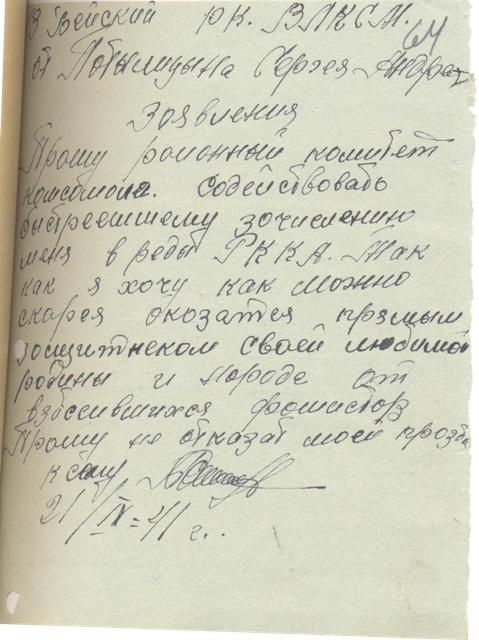 В Бейский рк. ВЛКСМ.
64
от Потылицына Сергея Андре
Заявления
Прошу районный комитет
комсомола. содействовать
быстреешему зочислению
меня в реды РККА. Так
как я хочу как можно
скорея окозатся прямым
зощитнеком своей любимой
родины и нороде от
взбесившихся фошистов
Прошу не отказат моей прозба
к сему
21/IV=41 г..